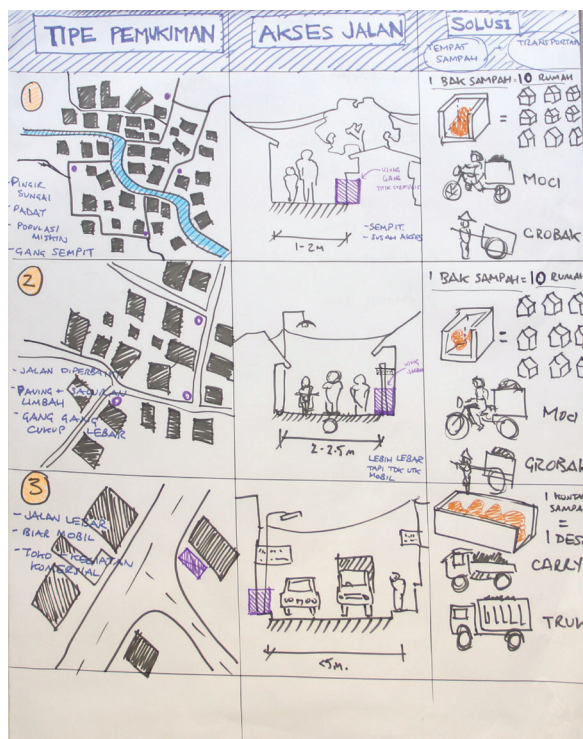 TIPE PEMUKIMAN
AKSES JALAN
SOLUSI
TEMPAT
SAMPAH
TRANSPORTA
1
- PINGIR
SUNGAI
- PADAT
- POPULASI
MISKIN
- GANG SEMPIT
UJUNG
GANG
1-2M
- SEMPIT
- SUSAH AKSES
1 BAK SAMPAH = 10 RUMAH
=
MOCI
GROBAK
2
- JALAN DIPERBAIKI
- PAVING + SALURAN
LIMBAH
- GANG GANG
CUKUP LEBAR
2-2.5M
LEBIH LEBAR
TAPI TDK UTK
MOBIL
1 BAK SAMPAH = 10 RUMAH
=
MOCI
GROBAK
3
- JALAN LEBAR
- BIAR MOBIL
- TOKO + KEGIATAN
KOMERSIAL
<5M.
1 KONTA
SAMPA
=
1 DES
CARRY
TRUK